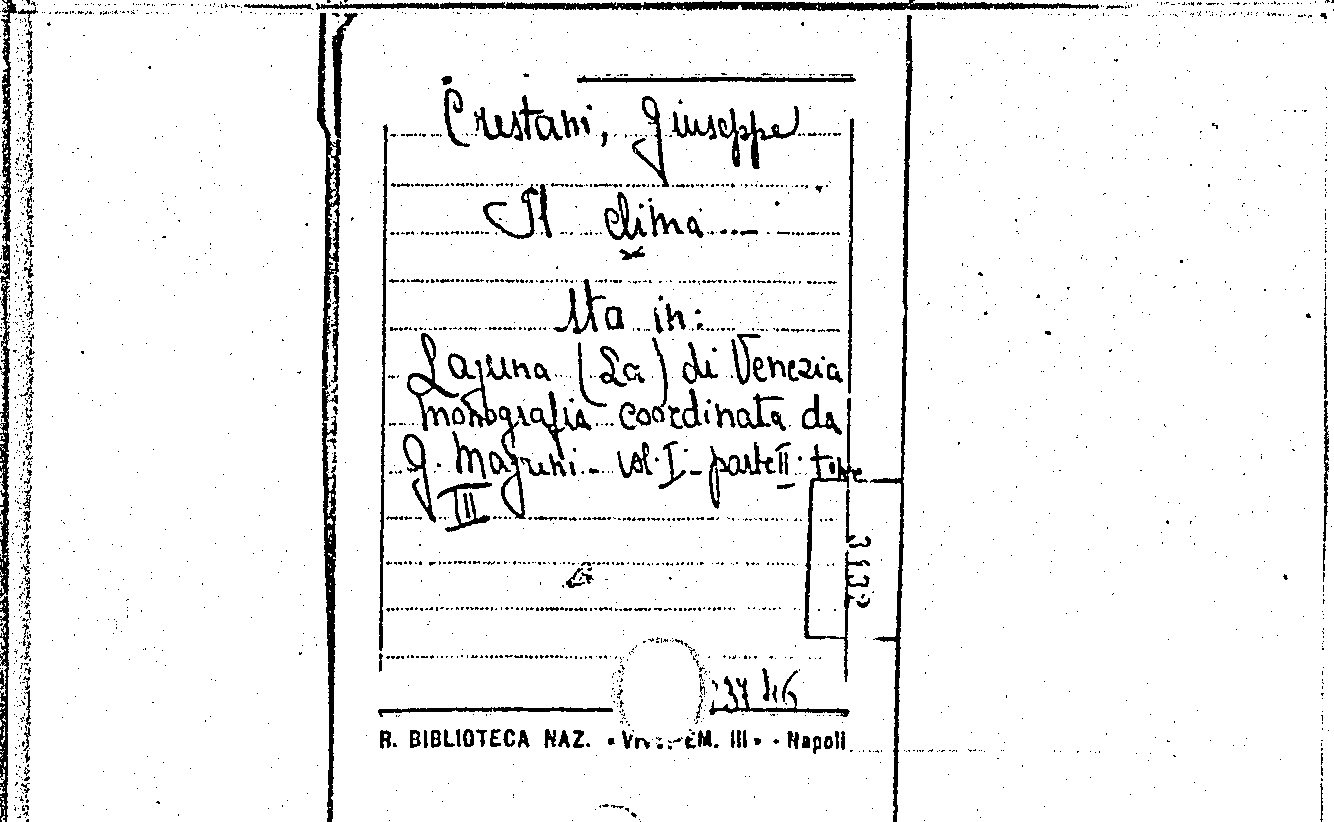 Crestani, Giuseppe
Il clima ...
Sta in:
Laguna (La) di Venezia
monografia coordinata da
G. Magrini - vol. I - parte II. tomo
III
3132
R. BIBLIOTECA NAZ. « VITT. EM. III » - Napoli